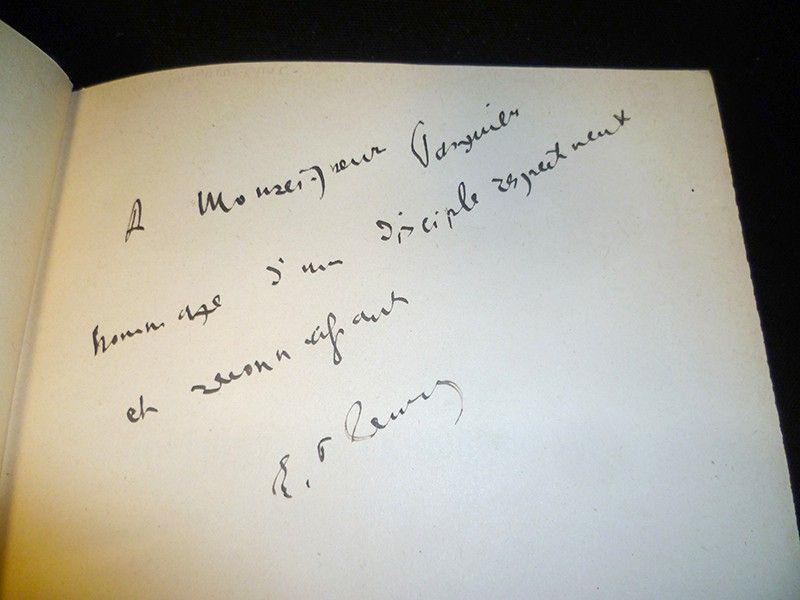 A Monseigneur Pasquier
hommage d'un disciple respectueux
et reconnaissant
E.